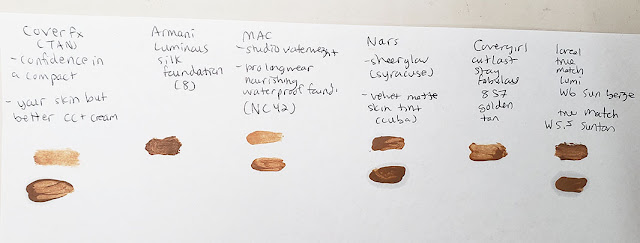 Coverfx
(TAN)
- confidence in
a compact
- your skin but
better CC+ cream
Armani
Luminous
silk
foundation
(8)
MAC
- studio waterweight
- pro longwear
nourishing
waterproof found.
(NC42)
Nars
- sheerglow
(syracuse)
- velvet matte
skin tint
(cuba)
Covergirl
outlast
stay
fabulous
857
golden
tan
loreal
true
match
lumi
W6 sun beige
true match
W5.5 suntan